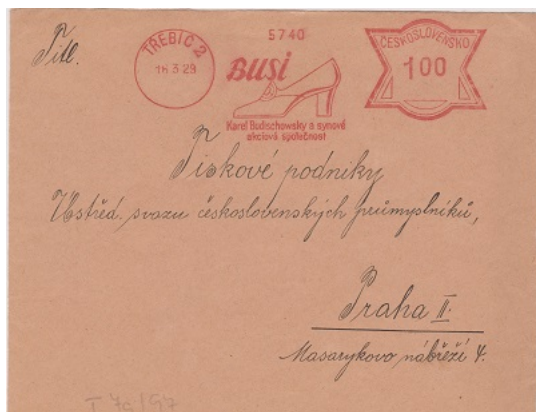 Titl.
TŘEBÍČ 2
16.3.29
5740
BUSI
Karel Budischowsky a synové
akciová společnost
ČESKOSLOVENSKO
100
Tiskové podniky
Ústřed. svazu československých průmyslníků,
Praha II.
Masarykovo nábřeží 4.